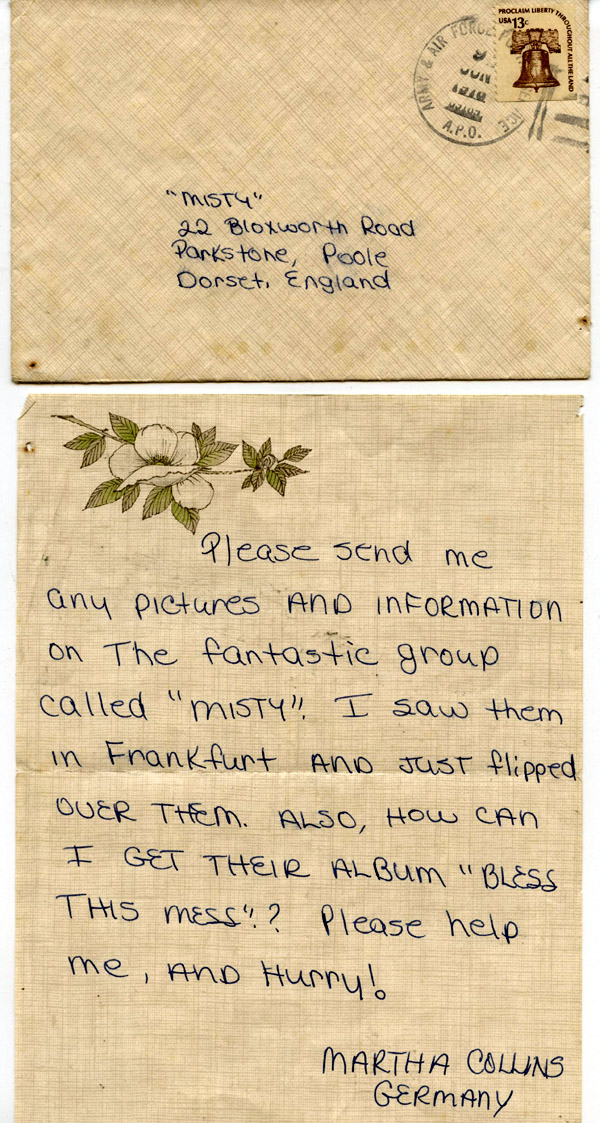 PROCLAIM LIBERTY THROUGHOUT ALL THE LAND
USA 13c
ARMY & AIR FORCE
9
JUN
A.P.O.
"MISTY"
22 Bloxworth Road
Parkstone, Poole
Dorset, England
Please send me
any pictures AND INFORMATION
on The fantastic group
called "MISTY". I saw them
in Frankfurt AND JUST flipped
OVER THEM. ALSO, HOW CAN
I GET THEIR ALBUM "BLESS
THIS MESS"? Please help
me, AND Hurry!
MARTHA COLLINS
GERMANY